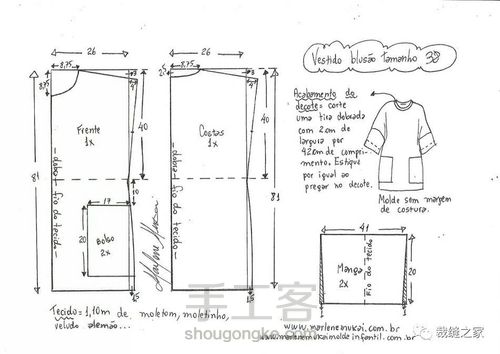 Vestido blusão tamanho 38
26
8,75
8,75
3
4
40
Frente
1x
81
-dobra- fio do tecido-
10
17
20
Bolso
2x
1,5
Marlene Mukai
26
8,75
2
3
4
40
Costas
1x
-dobra- fio do tecido-
81
1,5
Acabamento do
decote = corte
uma tira dobrada
com 2cm de
largura por
42cm de compri-
mento. Estique
por igual ao
pregar no decote.
Molde sem margem
de costura.
41
Manga
2x
fio do tecido
20
1
1
Tecido = 1,10m de moletom, moletinho,
veludo alemão...
www.marlenemukai.com.br
www.marlenemukaimoldeinfantil.com.br
手工客
shougongke.com
裁缝之家